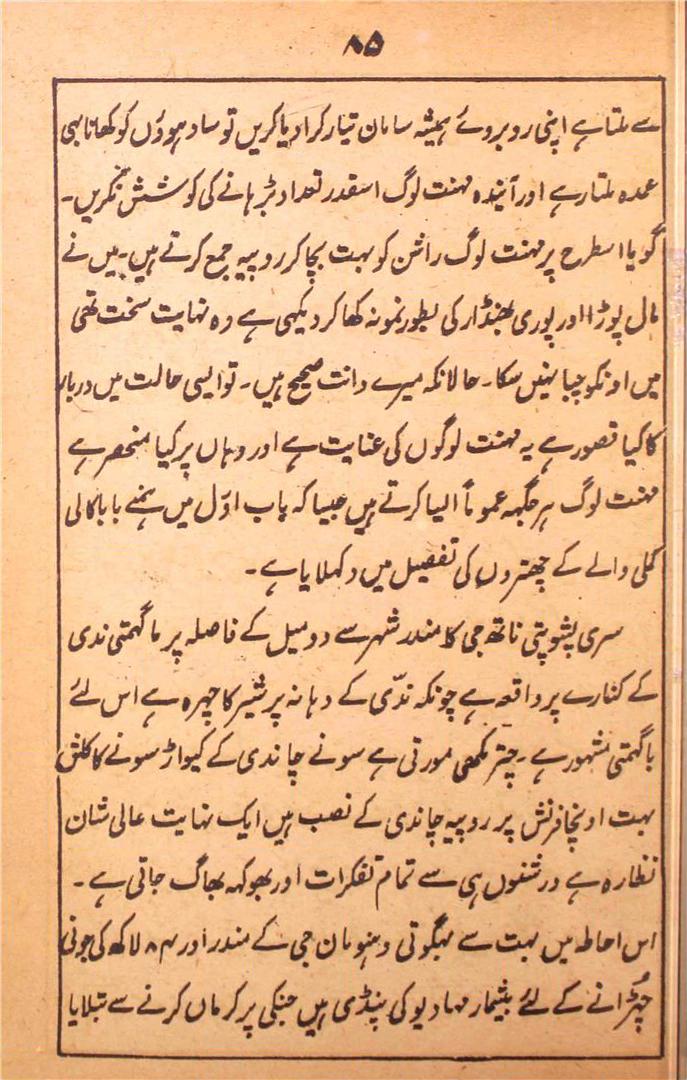 ۸۵
سے ملتا ہے اپنی روبروئے ہمیشہ سامان تیار کرا دیا کریں تو سادہوؤں کو کھانا بھی
عمدہ ملتا رہے اور آیندہ مہنت لوگ اسقدر تعداد بڑہانے کی کوشش نکریں۔
گویا اسطرح پر مہنت لوگ راشن کو بہت بچا کر روپیہ جمع کرتے ہیں۔ میں نے
مال پوڑا اور پوری بھنڈار کی بطور نمونہ کھا کر دیکھی ہے وہ نہایت سخت تھی
میں اونکو چبا نہیں سکا۔ حالانکہ میرے دانت صحیح ہیں۔ تو ایسی حالت میں دربار
کا کیا قصور ہے یہ مہنت لوگوں کی عنایت ہے اور وہاں پر کیا منحصر ہے
مہنت لوگ ہر جگہہ عموماً ایسا کرتے ہیں جیسا کہ باب اوّل میں ہمنے بابا کالی
کملی والے کے چھتروں کی تفصیل میں دکہلایا ہے۔
سری پشوپتی ناتھ جی کا مندر شہر سے دو میل کے فاصلہ پر ماگہمتی ندی
کے کنارے پر واقعہ ہے چونکہ ندّی کے دہانہ پر شیر کا چہرہ ہے اس لئے
باگہمتی مشہور ہے۔ چتر مکھی مورتی ہے سونے چاندی کے کیواڑ سونے کا کلش
بہت اونچا فرش پر روپیہ چاندی کے نصب ہیں ایک نہایت عالی شان
نظارہ ہے درشنوں ہی سے تمام تفکرات اور بھوکہہ بھاگ جاتی ہے۔
اس احاطہ میں بہت سے بہگوتی و ہنومان جی کے مندر اور ۸۴ لاکھ کی جونی
چُہڑانے کے لئے بیشمار مہادیو کی پنڈی ہیں جنکی پرکرماں کرنے سے بتلایا